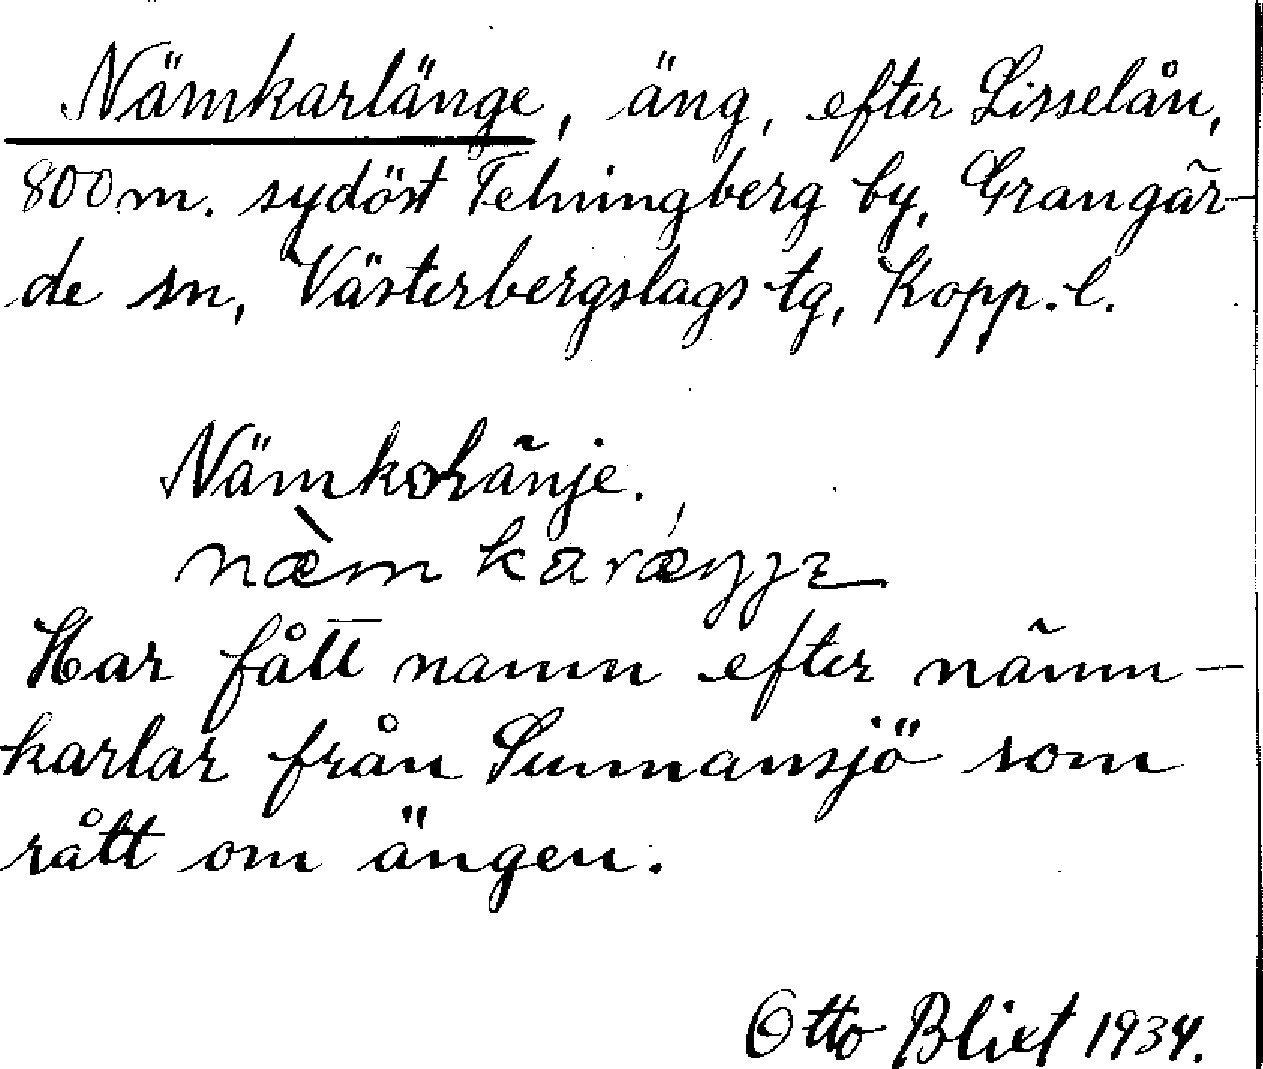 Nämkarlänge, äng, efter Lisselån,
800 m. sydöst Telningberg by, Grangär-
de sn, Västerbergslags tg, Kopp. l.
Nämkolänje.
Har fått namn efter nämn-
karlar från Sunnansjö som
rått om ängen.
Otto Blixt 1934.